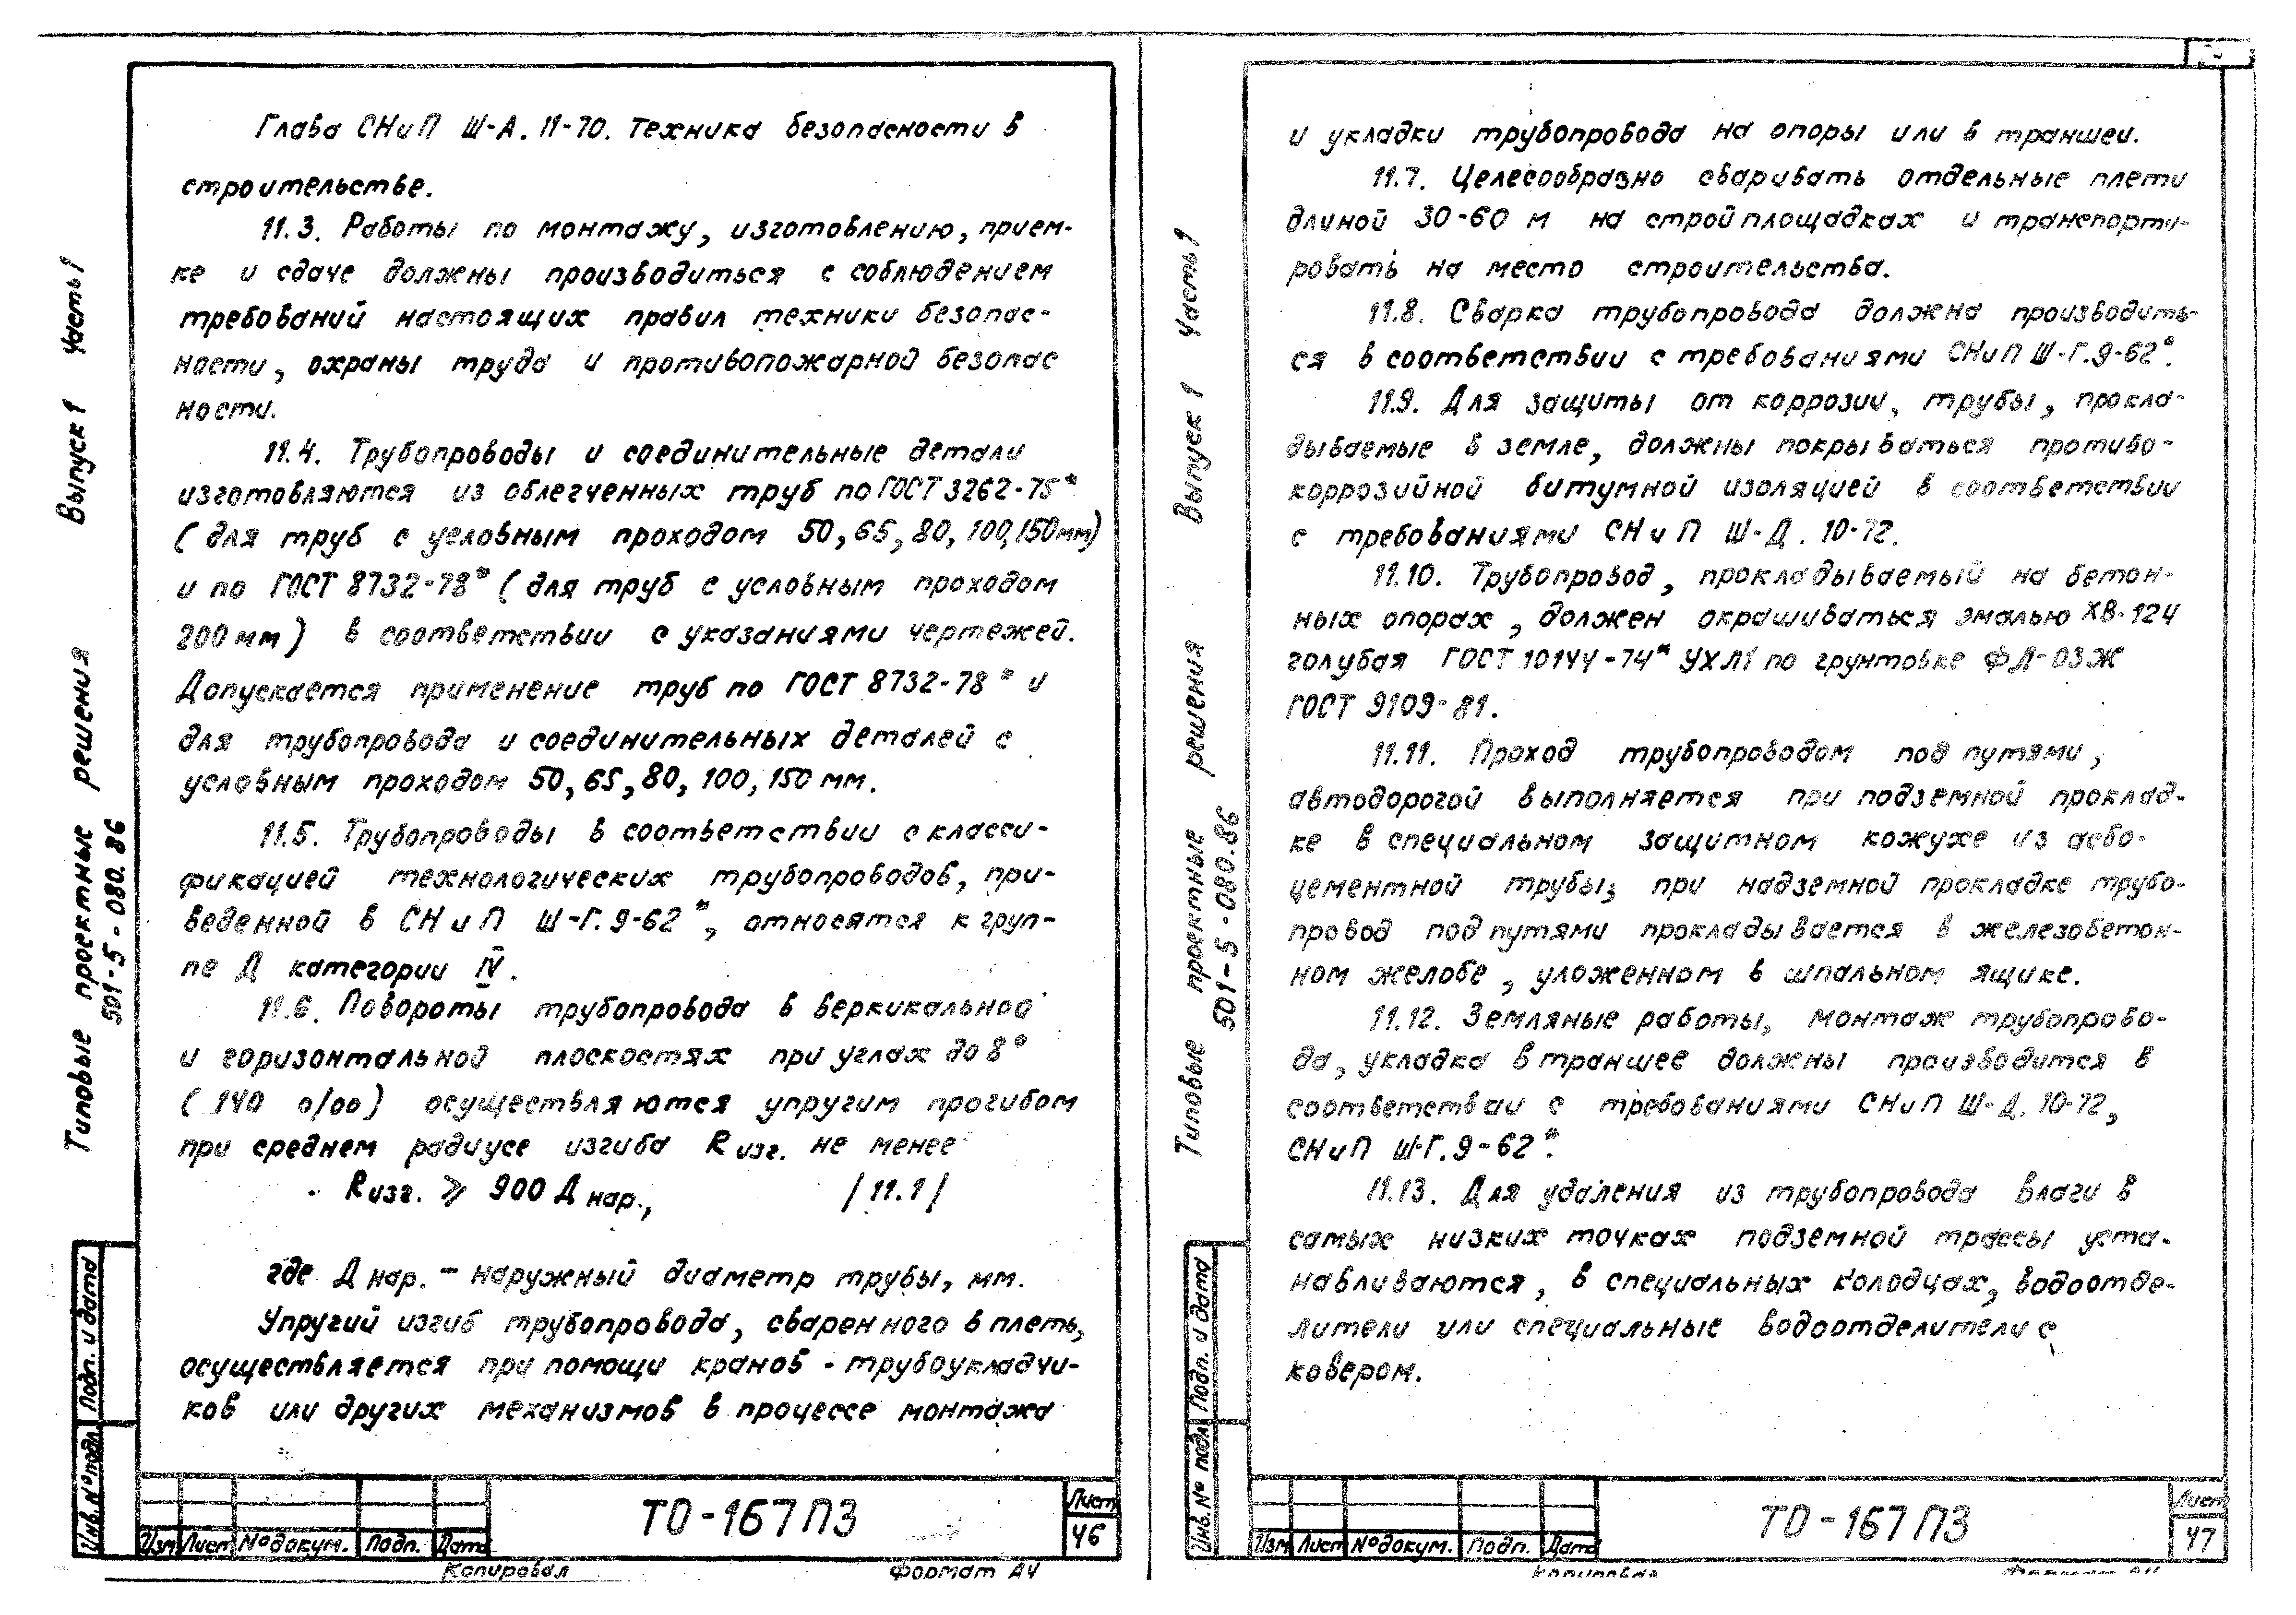 Глава СНиП Ш-А. 11-70. Техника безопасности в
строительстве.
11.3. Работы по монтажу, изготовлению, прием-
ке и сдаче должны производиться с соблюдением
требований настоящих правил техники безопас-
ности, охраны труда и противопожарной безопас
ности.
11.4. Трубопроводы и соединительные детали
изготовляются из облегченных труб по ГОСТ 3262-75*
(для труб с условным проходом 50, 65, 80, 100, 150мм)
и по ГОСТ 8732-78* (для труб с условным проходом
200 мм) в соответствии с указаниями чертежей.
Допускается применение труб по ГОСТ 8732-78* и
для трубопровода и соединительных деталей с
условным проходом 50, 65, 80, 100, 150 мм.
11.5. Трубопроводы в соответствии с класси-
фикацией технологических трубопроводов, при-
веденной в СНиП Ш-Г. 9-62*, относятся к груп-
пе Д категории IV.
11.6. Повороты трубопровода в веркикальной
и горизонтальной плоскостях при углах до 8°
(140 о/оо) осуществляются упругим прогибом
при среднем радиусе изгиба R изг. не менее
R изг. ⩾ 900 Д нар., /11.1/
где Д нар. - наружный диаметр трубы, мм.
Упругий изгиб трубопровода, сваренного в плеть,
осуществляется при помощи кранов - трубоукладчи-
ков или других механизмов в процессе монтажа
Типовые проектные решения Выпуск 1 Часть 1
501-5-080.86
Подп. и дата
Инв. № подл.
Изм Лист № докум. Подп. Дата
ТО-167 ПЗ
Лист
46
Копировал Формат А4
и укладки трубопровода на опоры или в траншеи.
11.7. Целесообразно сваривать отдельные плети
длиной 30-60 м на строй площадках и транспорти-
ровать на место строительства.
11.8. Сварка трубопровода должна производить-
ся в соответствии с требованиями СНиП Ш-Г. 9-62*.
11.9. Для защиты от коррозии, трубы, прокла-
дываемые в земле, должны покрываться противо-
коррозийной битумной изоляцией в соответствии
с требованиями СНиП Ш-Д. 10-72.
11.10. Трубопровод, прокладываемый на бетон-
ных опорах, должен окрашиваться эмалью ХВ-124
голубая ГОСТ 10144-74* УХЛ1 по грунтовке ФЛ-03Ж
ГОСТ 9109-81.
11.11. Проход трубопроводом под путями,
автодорогой выполняется при подземной проклад-
ке в специальном защитном кожухе из асбо-
цементной трубы; при надземной прокладке трубо-
провод под путями прокладывается в железобетон-
ном желобе, уложенном в шпальном ящике.
11.12. Земляные работы, монтаж трубопрово-
да, укладка в траншее должны производится в
соответствии с требованиями СНиП Ш-Д. 10-72,
СНиП Ш-Г. 9-62*.
11.13. Для удаления из трубопровода влаги в
самых низких точках подземной трассы уста-
навливаются, в специальных колодцах, водоотде-
лители или специальные водоотделители с
ковером.
Типовые проектные решения Выпуск 1 Часть 1
501-5-080.86
Подп. и дата
Инв. № подл
Изм Лист № докум. Подп. Дата
ТО-167 ПЗ
Лист
47
Копировал Формат А4